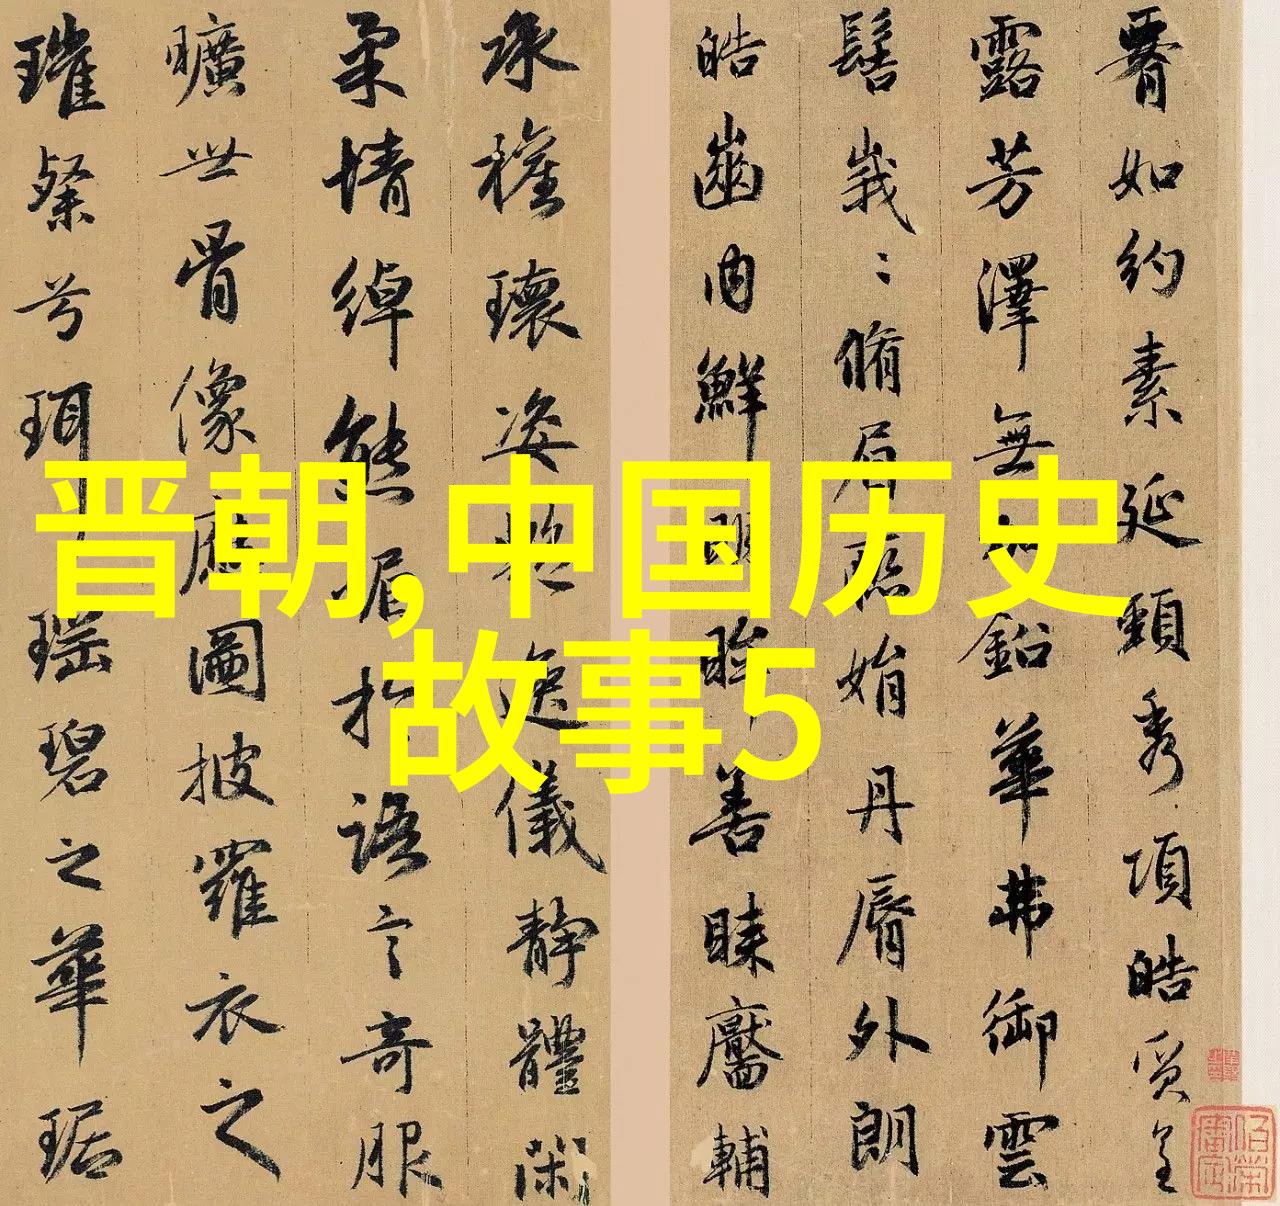 晋朝,中国历史
故事5
腰如約素延頸秀項皓質呈
露芳澤無加鉛華弗御雲
髻峩〻脩眉聯娟丹脣外朗
皓齒内鮮明眸善睞靨輔
承權瓌姿艷逸儀靜體閑
柔情綽態媚於語言奇服
曠世骨像應圖披羅衣之
璀粲兮珥瑶碧之華琚